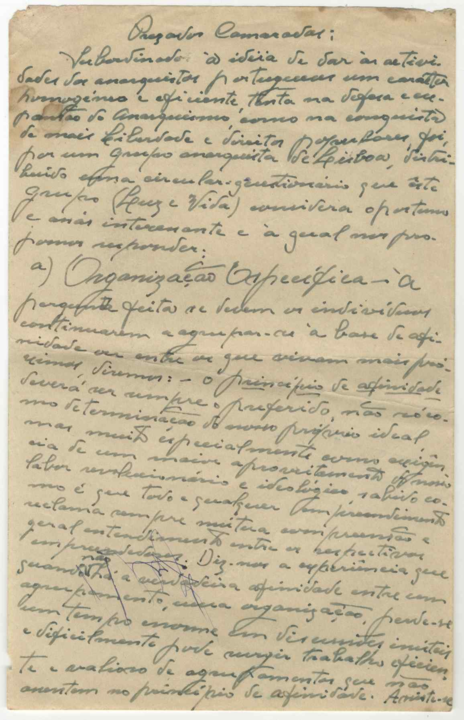 Prezados Camaradas:
Subordinado à idéia de dar às activi-
dades dos anarquistas portugueses um caracter
homogéneo e eficiente, tanto na defesa e ex-
pansão do Anarquismo como na conquista
de mais Liberdade e direitos populares, foi
por um grupo anarquista de Lisboa, distri-
buído uma circular-questionário que êste
Grupo (Luz e Vida) considera oportuno
e mais interessante e à qual nos pro-
pomos responder:
a) Organização Específica - À
pergunta feita se devem os indivíduos
continuarem a agrupar-se à base de afi-
nidade ou entre os que vivam mais pró-
ximos, diremos: - o princípio de afinidade
deverá ser sempre o preferido, não só co-
mo determinação do nosso próprio ideal
mas muito especialmente como exigên-
cia de um maior aproveitamento do nosso
labor revolucionário e ideológico, sabido co-
mo é que todo e qualquer empreendimento
reclama sempre mútua compreensão e
geral entendimento entre os respectivos
empreendedores. Diz-nos a experiência que
quando não há a verdadeira afinidade entre um
agrupamento, numa organização, perde-se
um tempo enorme em discussões inúteis
e dificilmente pode surgir trabalho eficien-
te e valioso de agrupamentos que não
assentem no princípio de afinidade.